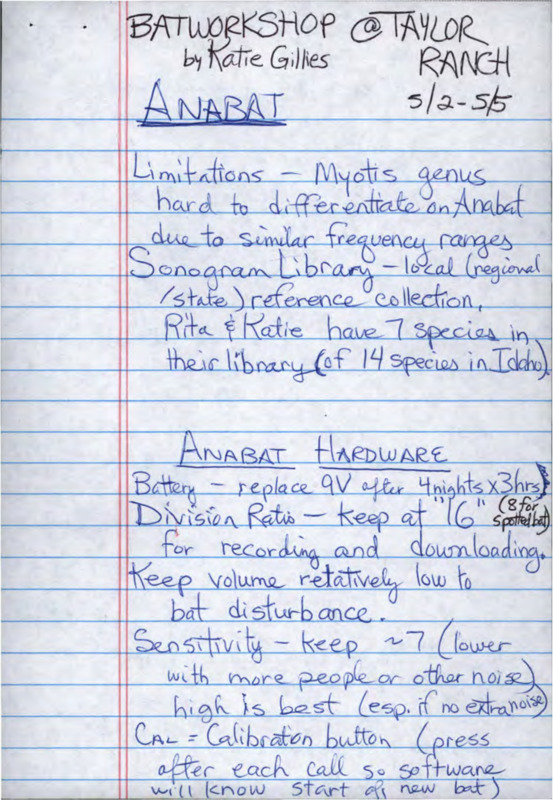 BATWORKSHOP @ TAYLOR
by Katie Gillies RANCH
ANABAT 5/2-5/5
Limitations - Myotis genus
hard to differentiate on Anabat
due to similar frequency ranges
Sonogram Library - local (regional
/state) reference collection,
Rita & Katie have 7 species in
their library (of 14 species in Idaho).
ANABAT HARDWARE
Battery - replace 9V after 4nights x 3hrs)
Division Ratio - Keep at "16" (8 for spotted bat)
for recording and downloading.
Keep volume relatively low to
bat disturbance.
Sensitivity - keep ~7 (lower
with more people or other noise)
high is best (esp. if no extra noise)
CAL = Calibration button (press
after each call so software
will know start of new bat)